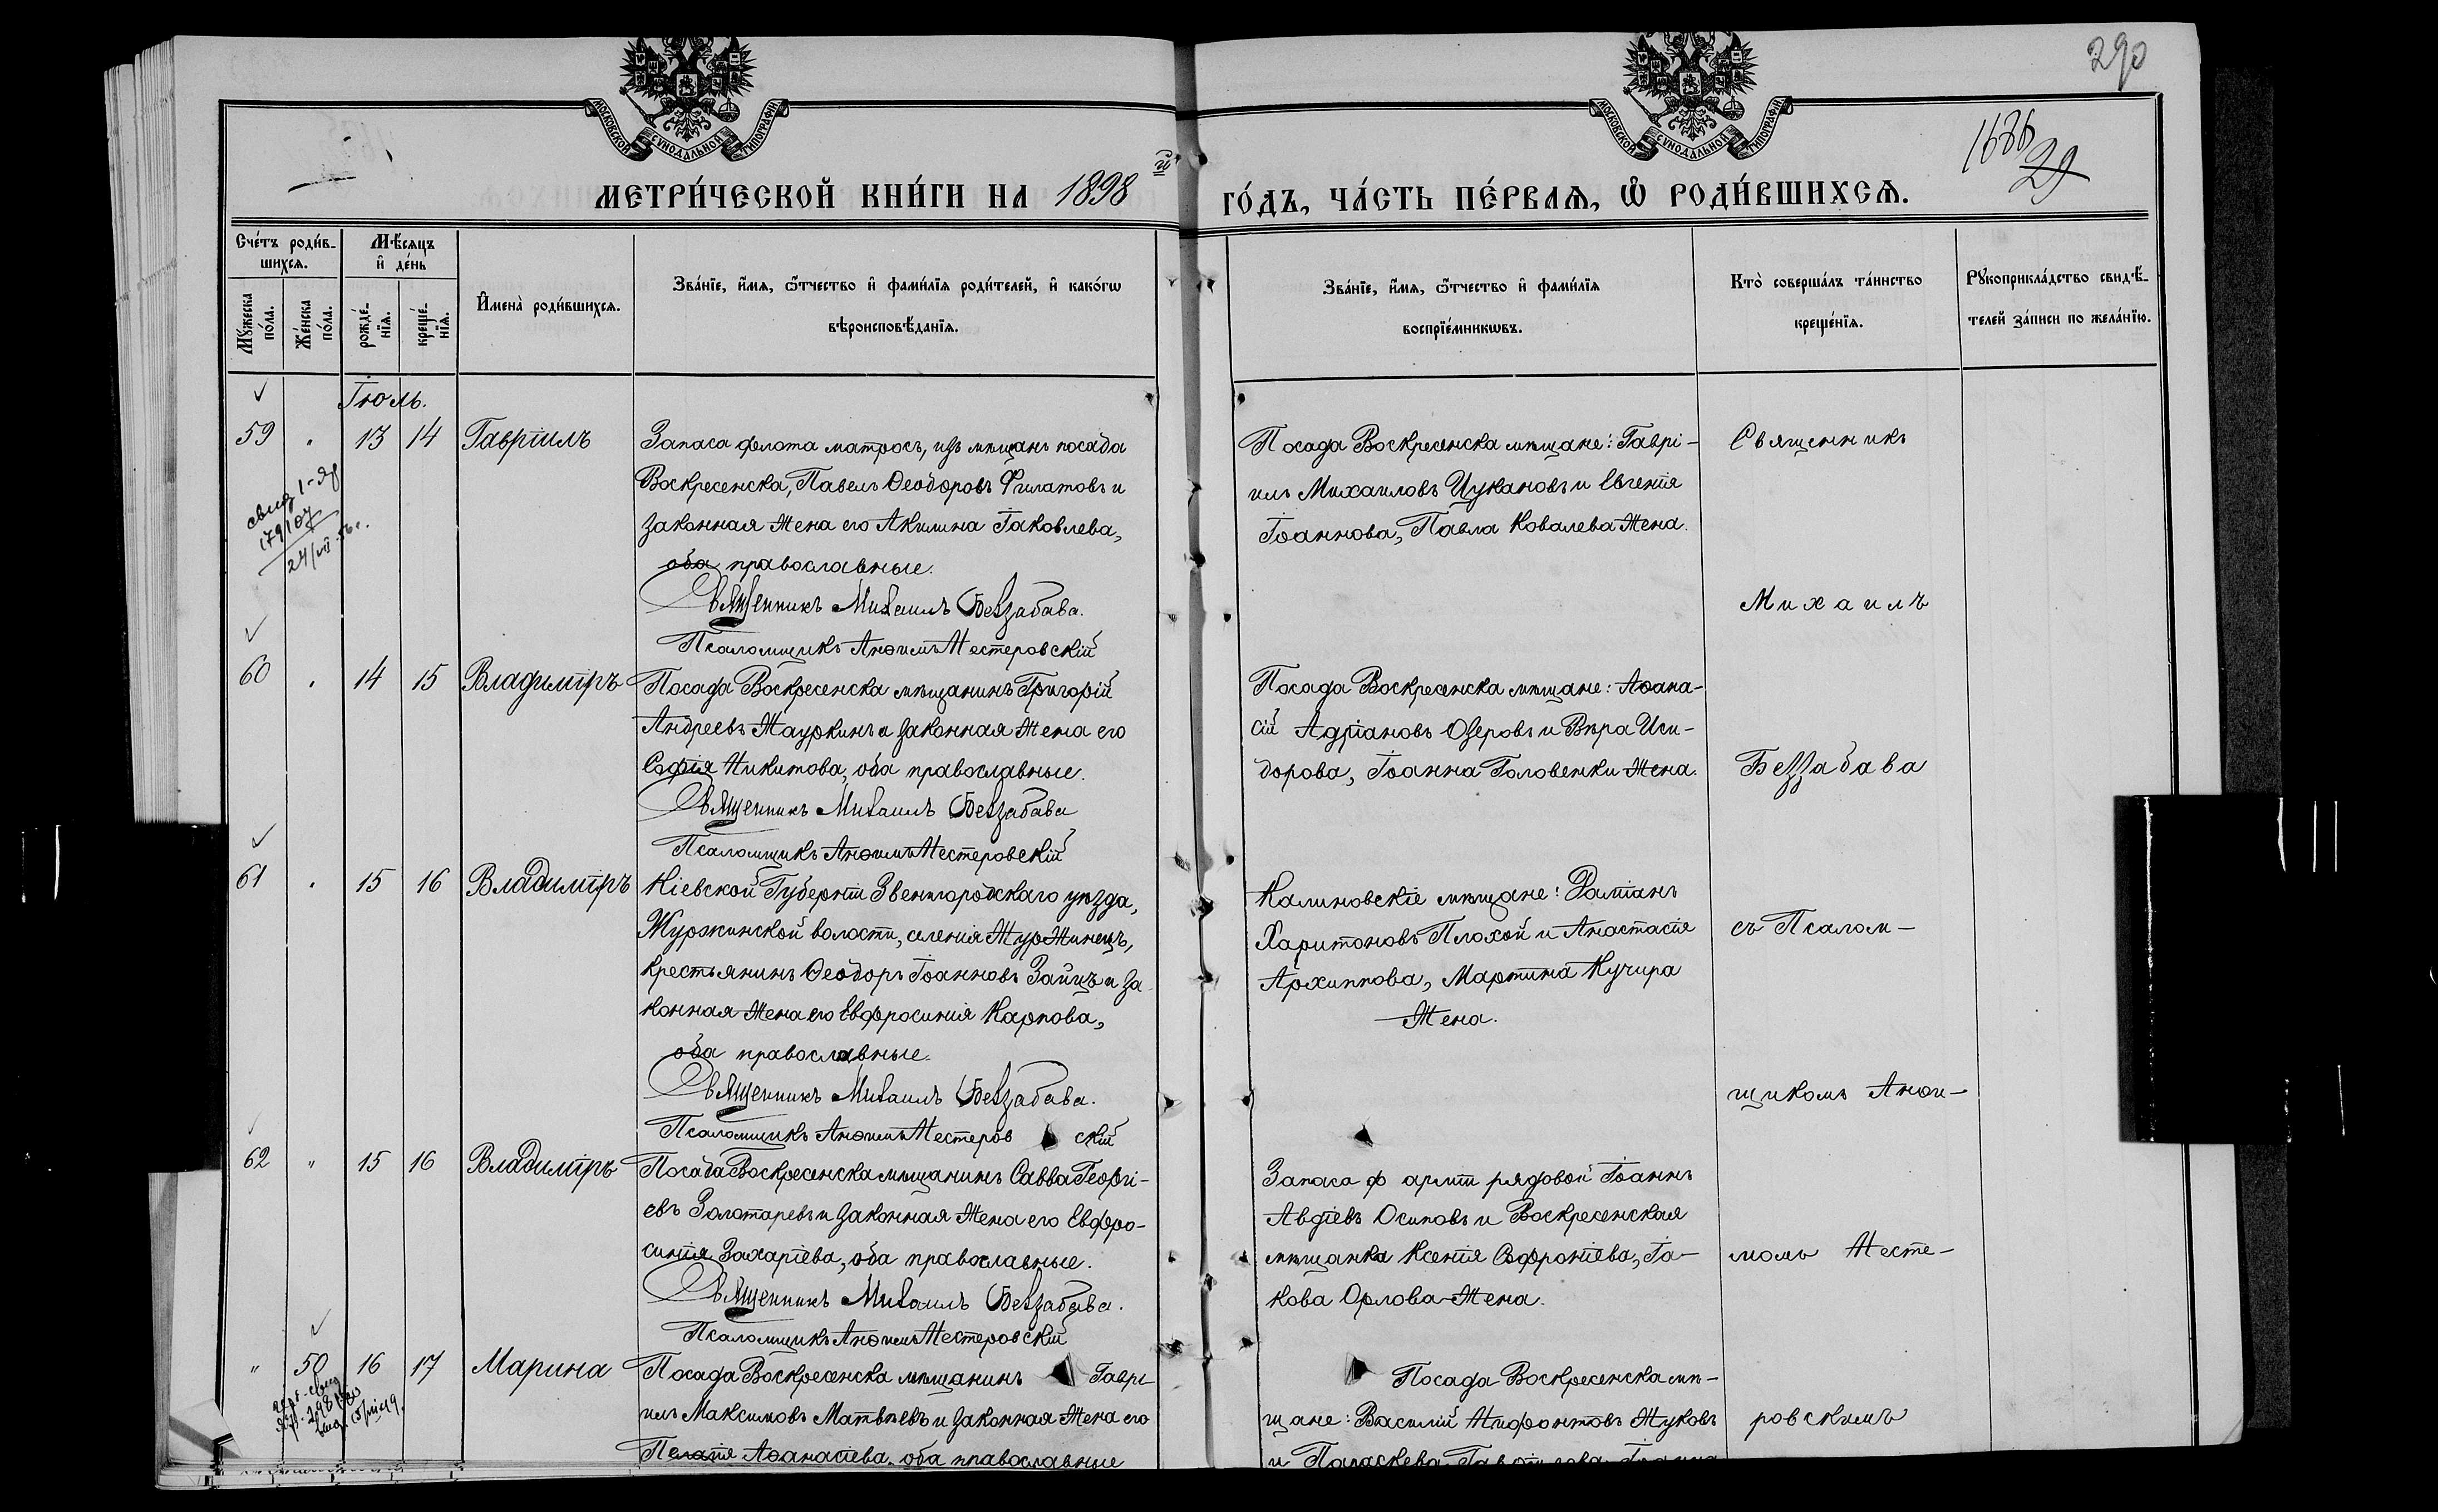 290
МОСКОВСКОЙ СѴНОДАЛЬНОЙ ТИПОГРАФІИ
МОСКОВСКОЙ СѴНОДАЛЬНОЙ ТИПОГРАФІИ
1686
29
МЕТРИ́ЧЕСКОЙ КНИ́ГИ НА 1898 й
ГО́ДЪ, ЧА́СТЬ ПЕ́РВАѦ, Ѡ РОДИ́ВШИХСѦ.
Счéтъ роди́в-
шихсѧ.
Мѣ́сѧцъ
и҆ де́нь
Мꙋ́жеска
по́ла.
Же́нска
по́ла.
рожде́-
нїѧ.
креще́-
нїѧ.
И҆мена̀ роди́вшихсѧ.
Зва́нїе, и҆́мѧ, ѻ҆́тчество и҆ фами́лїѧ роди́телей, и҆ како́гѡ
вѣроисповѣ́данїѧ.
Зва́нїе, и҆́мѧ, ѻ҆́тчество и҆ фами́лїѧ
воспрїе́мникѡвъ.
Кто̀ соверша́лъ та́инство
креще́нїѧ.
Рꙋкоприкла́дство свидѣ́-
телей за́писи по жела́нїю.
Іюль.
59 " 13 14 Гавріилъ
Запаса флота матросъ, изъ мѣщанъ посада
Воскресенска, Павелъ Ѳеодоровъ Филатовъ и
законная жена его Акилина Іаковлева,
оба православные.
Священникъ Михаилъ Беззабава.
Псаломщикъ Анѳимъ Нестеровскій
Посада Воскресенска мѣщане: Гаврі-
илъ Михаиловъ Цукановъ и Евгенія
Іоаннова, Павла Ковалева жена.
Священникъ
Михаилъ
60 " 14 15 Владиміръ
Посада Воскресенска мѣщанинъ Григорій
Андреевъ Мауркинъ и законная жена его
Софія Никитова, оба православные.
Священникъ Михаилъ Беззабава
Псаломщикъ Анѳимъ Нестеровскій
Посада Воскресенска мѣщане: Аѳана-
сій Адріановъ Озеровъ и Вѣра Иси-
дорова, Іоанна Головенки жена.
Беззабава
61 " 15 16 Владиміръ
Кіевской Губерніи Звенигородскаго уѣзда,
Журжинской волости, селенія Журжинецъ,
крестьянинъ Ѳеодоръ Іоанновъ Заицъ и за
конная жена его Евфросинія Карпова,
оба православные.
Священникъ Михаилъ Беззабава.
Псаломщикъ Анѳимъ Нестеровскій
Калиновскіе мѣщане: Даміанъ
Харитоновъ Плохой и Анастасія
Архиппова, Мартина Кучира
жена.
съ Псалом-
щикомъ Анѳи-
62 " 15 16 Владиміръ
Посада Воскресенска мѣщанинъ Савва Георгі-
евъ Золотаревъ и законная жена его Евфро-
синія Захаріева, оба православные.
Священникъ Михаилъ Беззабава.
Псаломщикъ Анѳимъ Нестеровскій
Запаса ф арміи рядовой Іоаннъ
Авдіевъ Осиповъ и Воскресенская
мѣщанка Ксенія Софроніева, Іа-
кова Орлова жена.
момъ Несте-
" 50 16 17 Марина
Посада Воскресенска мѣщанинъ Гаврі
илъ Максимовъ Матвѣевъ и законная жена его
Пелагія Аѳанасіева, оба православные
Посада Воскресенска мѣ-
щане: Василій Нифонтовъ Жуковъ
и Параскева Гавріилова Іоанна
ровскимъ